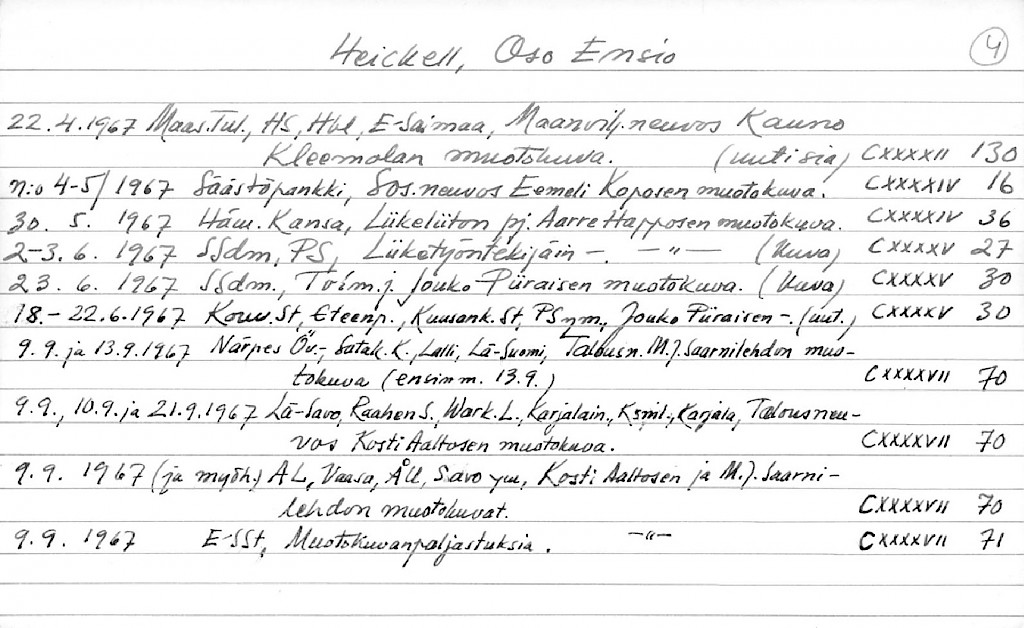 Heickell, Oso Ensio 4
22.4.1967 Maas.Tul., HS, Hbl, E-Saimaa, Maanvilj.neuvos Kauno
Kleemolan muotokuva. (uutisia) CXXXXII 130
n:o 4-5/1967 Säästöpankki, Sos.neuvos Eemeli Koposen muotokuva. CXXXXIV 16
30. 5. 1967 Häm. Kansa, Liikeliiton pj. Aarre Happosen muotokuva. CXXXXIV 36
2-3. 6. 1967 SSdm, PS, Liiketyöntekijäin -. —"— (kuva) CXXXXV 27
23. 6. 1967 SSdm., Toim.j. Jouko Piiraisen muotokuva. (kuva) CXXXXV 30
18.-22.6.1967 Kouv.St, Eteenp., Kuusank.St, PS ym., Jouko Piiraisen -. (uut.) CXXXXV 30
9.9. ja 13.9.1967 Närpes Öv., Satak.K., Lalli, Lä-Suomi, Talousn. M.J. Saarnilehdon muo-
tokuva (ensimm. 13.9.) CXXXXVII 70
9.9., 10.9. ja 21.9.1967 Lä-Savo, Raahen S., Wark.L., Karjalain., Ksml., Karjala, Talousneu-
vos Kosti Aaltosen muotokuva. CXXXXVII 70
9.9. 1967 (ja myöh.) AL, Vaasa, ÅU, Savo ym, Kosti Aaltosen ja M.J. Saarni-
lehdon muotokuvat. CXXXXVII 70
9.9. 1967 E-SSt, Muotokuvanpaljastuksia. —"— CXXXXVII 71